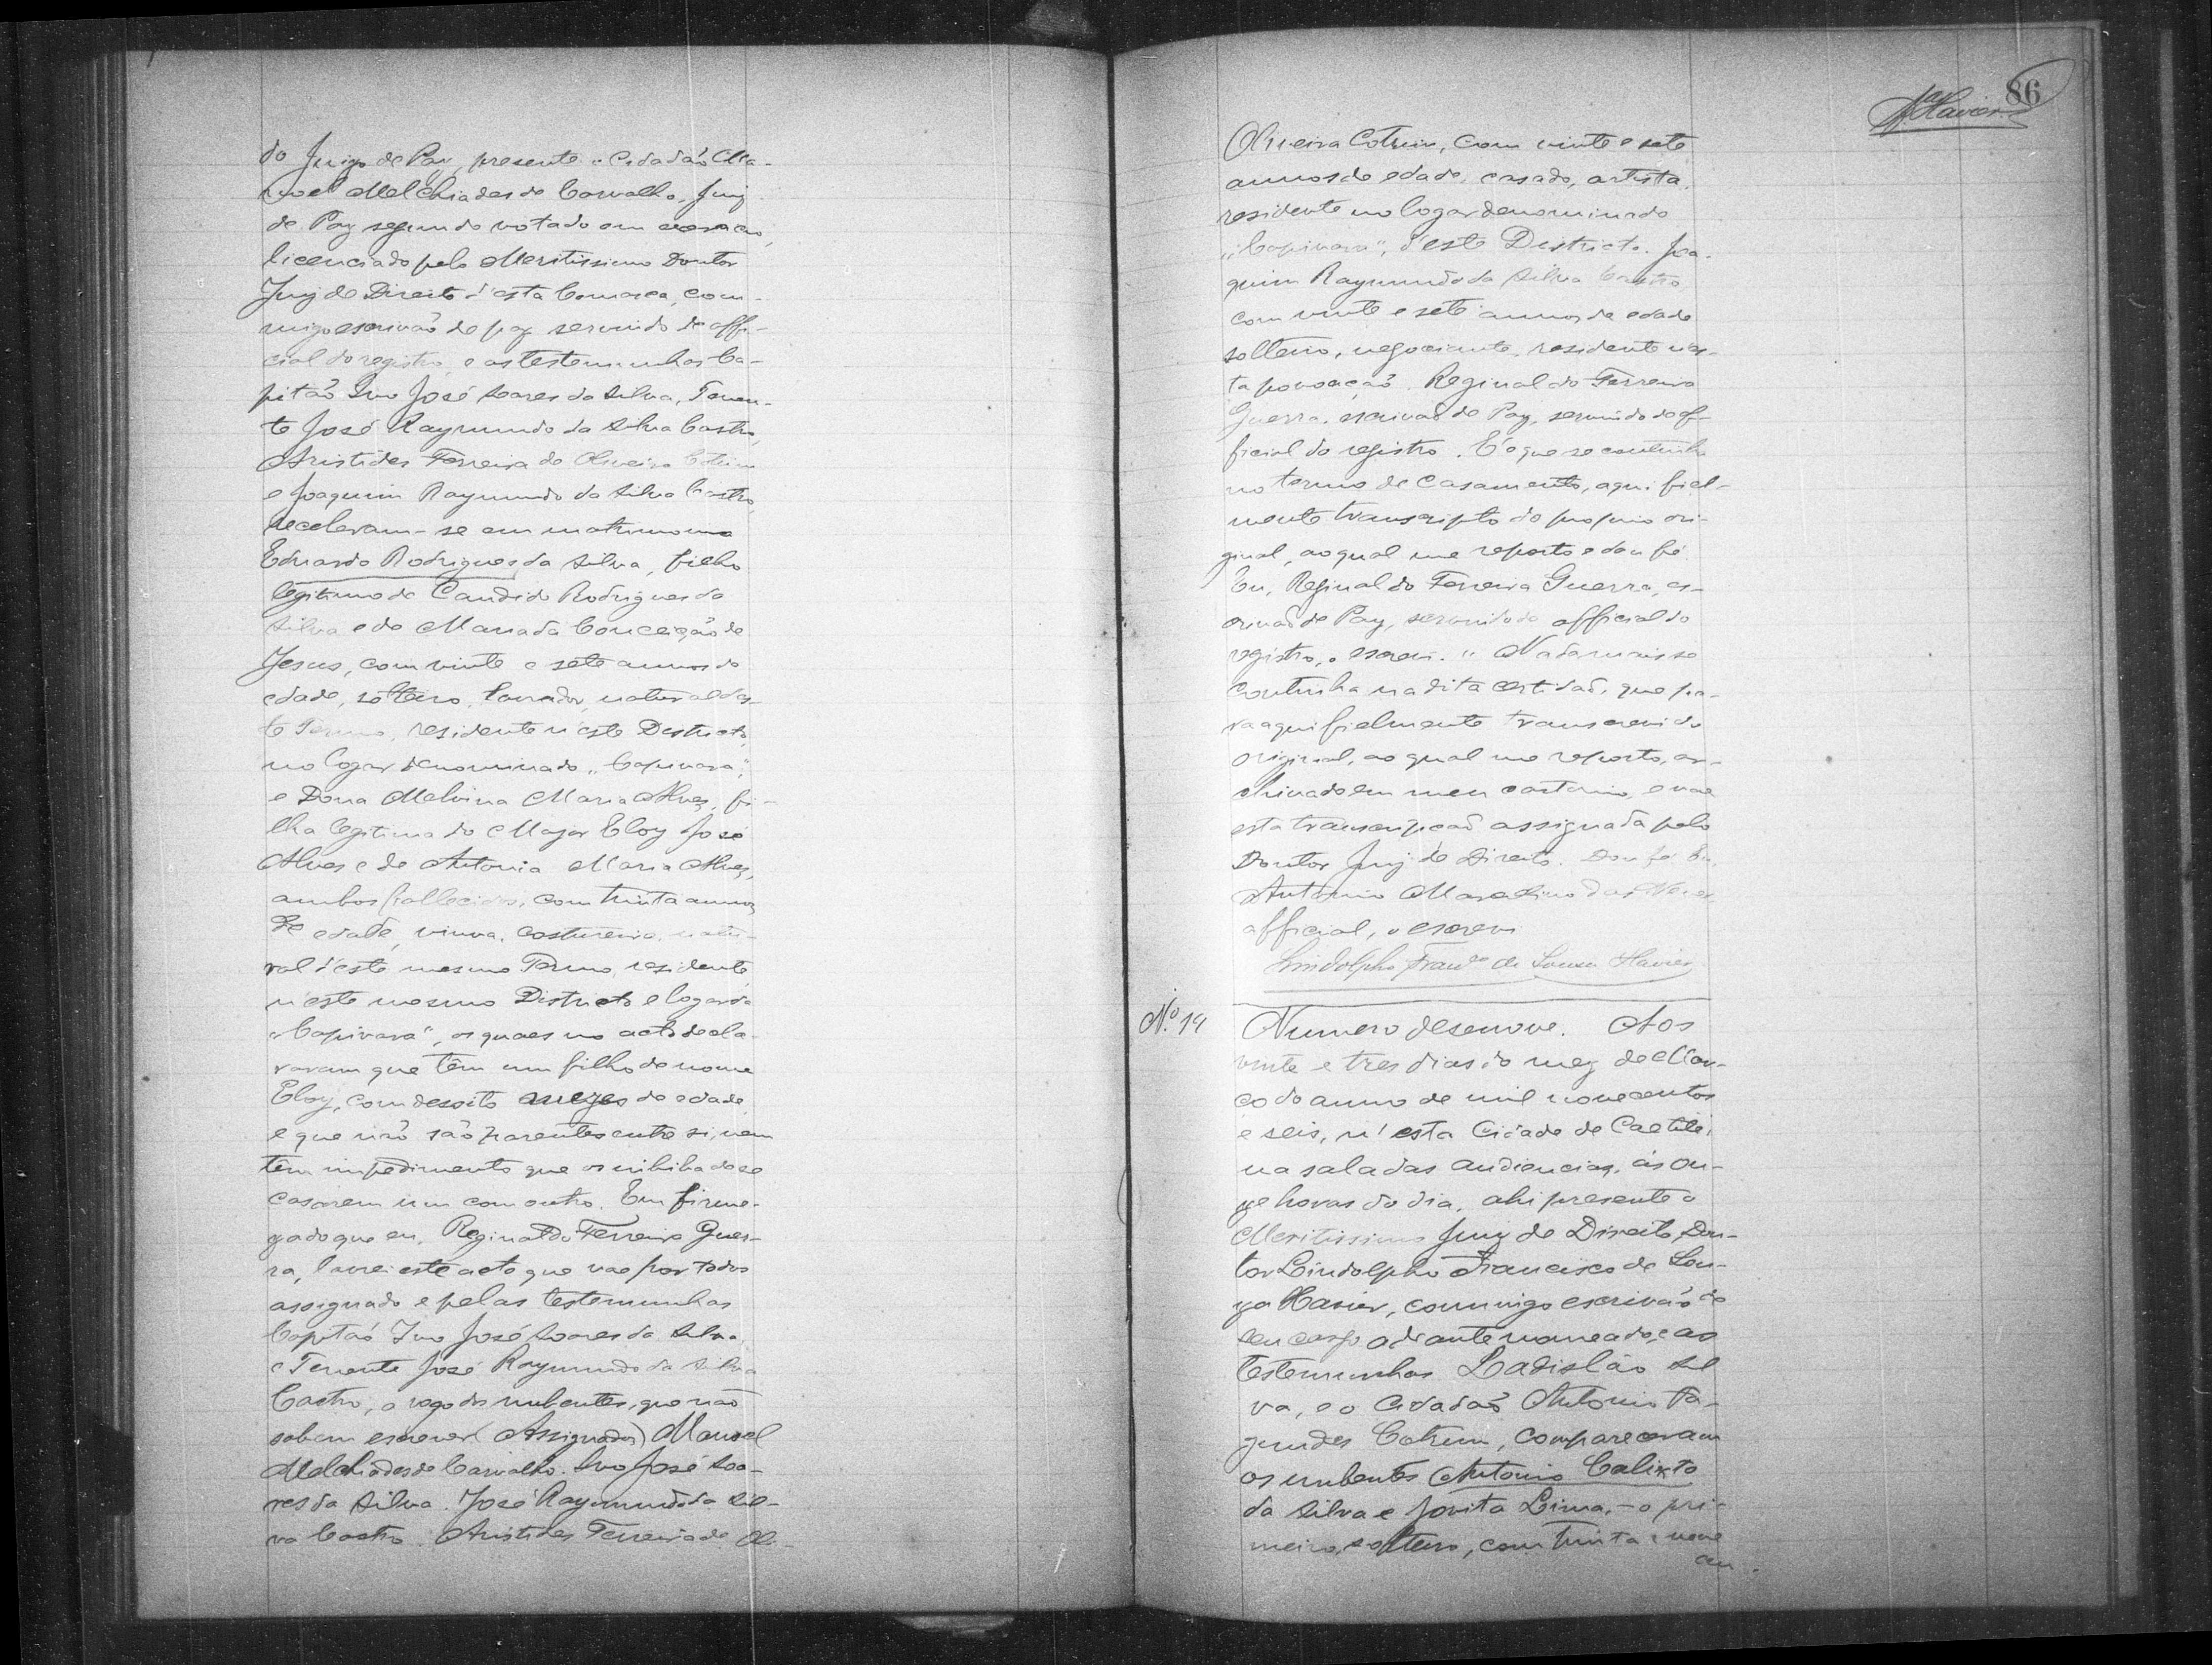 do Juizo de Paz, presente o Cidadão Ma-
noel Melchiades de Carvalho, Juiz
de Paz segundo votado em exercicio,
licenciado pelo Meritissimo Doutor
Juiz de Direito d'esta Comarca, com-
migo escrivão de paz servindo de offi-
cial do registro, e as testemunhas Ca-
pitão Ivo José Soares da Silva, Tenen-
te José Raymundo da Silva Castro,
Aristides Ferreira de Oliveira Cotrim
e Joaquim Raymundo da Silva Castro,
receberam-se em matrimonio
Eduardo Rodrigues da Silva, filho
legitimo de Candido Rodrigues da
Silva e de Maria da Conceição de
Jesus, com vinte e sete annos de
edade, solteiro, lavrador, natural des-
te Termo, residente n'este Districto,
no logar denominado "Capivara",
e Dona Melvina Maria Alves, fi-
lha legitima do Major Eloy José
Alves e de Antonia Maria Alves,
ambos fallecidos, com trinta annos
de edade, viuva, costureira, natu-
ral d'este mesmo Termo, residente
n'este mesmo Districto e logar da
"Capivara", os quaes no acto decla-
raram que têm um filho de nome
Eloy, com desoito mezes de edade,
e que não são parentes entre si, nem
têm impedimento que os inhiba de se
casarem um com outro. Em firme-
za do que eu, Reginaldo Ferreira Guer-
ra, lavrei este acto que vae por todos
assignado e pelas testemunhas
Capitão Ivo José Soares da Silva
e Tenente José Raymundo da Silva
Castro, a rogo dos nubentes, que não
sabem escrever (Assignados) Manoel
Melchiades de Carvalho. Ivo José Soa-
res da Silva. José Raymundo da Sil-
va Castro. Aristides Ferreira de Oli-
86
Xavier
Oliveira Cotrim, com vinte e sete
annos de edade, casado, artista,
residente no logar denominado
"Capivara", d'este Districto. Joa-
quim Raymundo da Silva Castro,
com vinte e sete annos de edade
solteiro, negociante, residente nes-
ta povoação. Reginaldo Ferreira
Guerra, escrivão de Paz, servindo de of-
ficial do registro. É o que se continha
no termo de casamento, aqui fiel-
mente transcripto do proprio ori-
ginal, ao qual me reporto e dou fé
Eu, Reginaldo Ferreira Guerra, es-
crivão de Paz, servindo de official do
registro, o escrevi. " Nada mais se
continha na dita certidão, que pa-
ra aqui fielmente transcrevi do
original, ao qual me reporto, ar-
chivado em meu cartorio, e vae
esta transcripção assignada pelo
Doutor Juiz de Direito. Dou fé. Eu,
Antonio Marcelino das Neves
official, o escrevi
Lindolpho Franco de Sousa Xavier
N.º 19
Numero desenove. Aos
vinte e tres dias do mez de Mar-
ço do anno de mil novecentos
e seis, n'esta Cidade de Caetité,
na sala das audiencias, ás on-
ze horas do dia, ahi presente o
Meritissimo Juiz de Direito, Dou-
tor Lindolpho Francisco de Sou-
za Xavier, commigo escrivão de
seu cargo adeante nomeado, e as
testemunhas Ladislão Sil
va, e o Cidadão Antonio Fa-
gundes Cotrim, compareceram
os nubentes Antonio Calixto
da Silva e Jovita Lima, - o pri-
meiro, solteiro, com trinta e nove
an